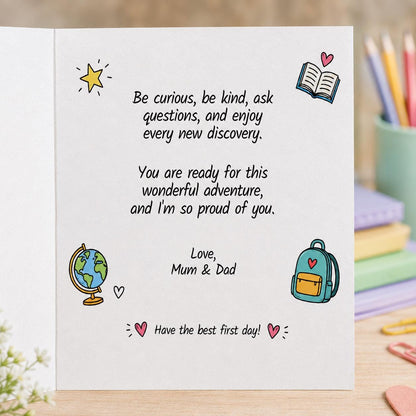 Be curious, be kind, ask
questions, and enjoy
every new discovery.
You are ready for this
wonderful adventure,
and I'm so proud of you.
Love,
Mum & Dad
Have the best first day!